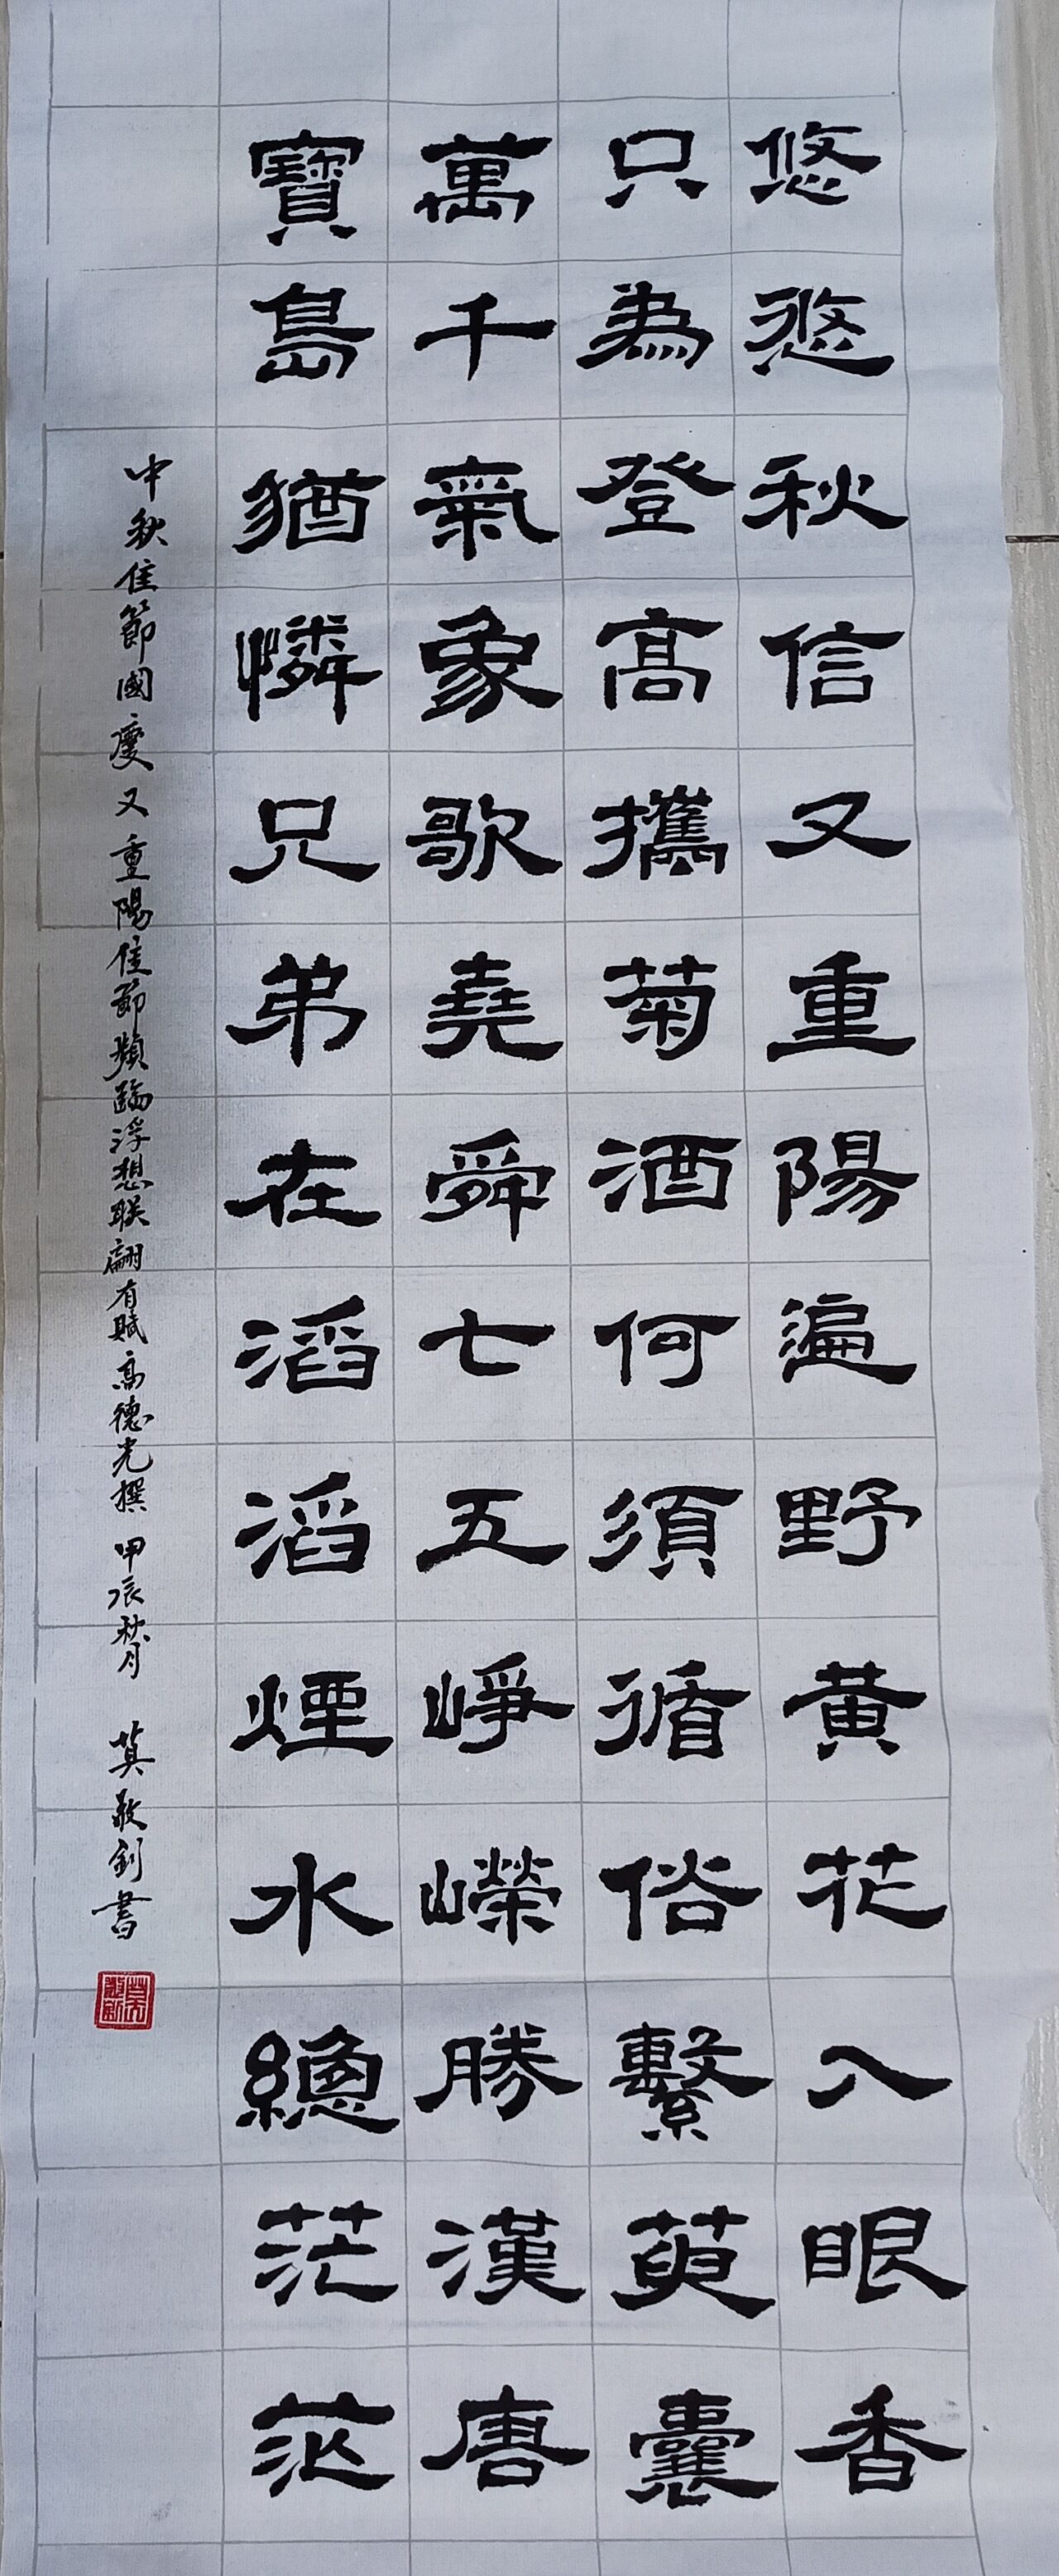 悠悠秋信又重陽遍野黄花入眼香
只為登高攜菊酒何須循俗繫萸囊
萬千氣象歌堯舜七五崢嶸勝漢唐
寶島猶憐兄弟在滔滔煙水總茫茫
中秋佳節國慶又重陽佳節頻臨浮想联翩有賦高德光撰 甲辰秋月 莫敬釗書